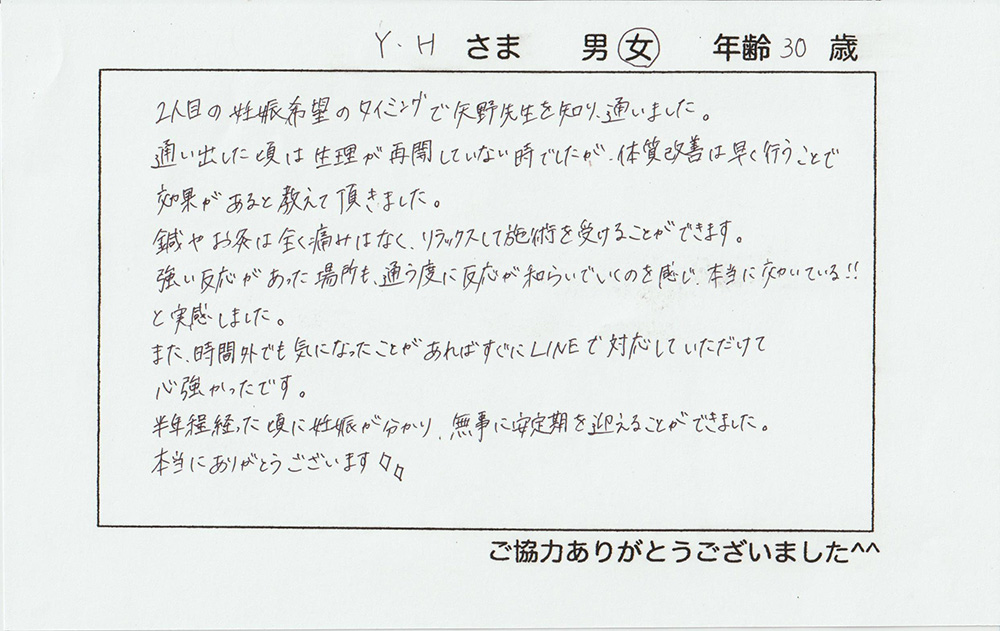 Y・H さま 男 女 年齢 30 歳
2人目の妊娠希望のタイミングで矢野先生を知り、通いました。
通い出した頃は生理が再開していない時でしたが、体質改善は早く行うことで
効果があると教えて頂きました。
鍼やお灸は全く痛みはなく、リラックスして施術を受けることができます。
強い反応があった場所も、通う度に反応が和らいでいくのを感じ、本当に効いている!!
と実感しました。
また、時間外でも気になったことがあればすぐにLINEで対応していただけて
心強かったです。
半年程経った頃に妊娠が分かり、無事に安定期を迎えることができました。
本当にありがとうございます
ご協力ありがとうございました^^